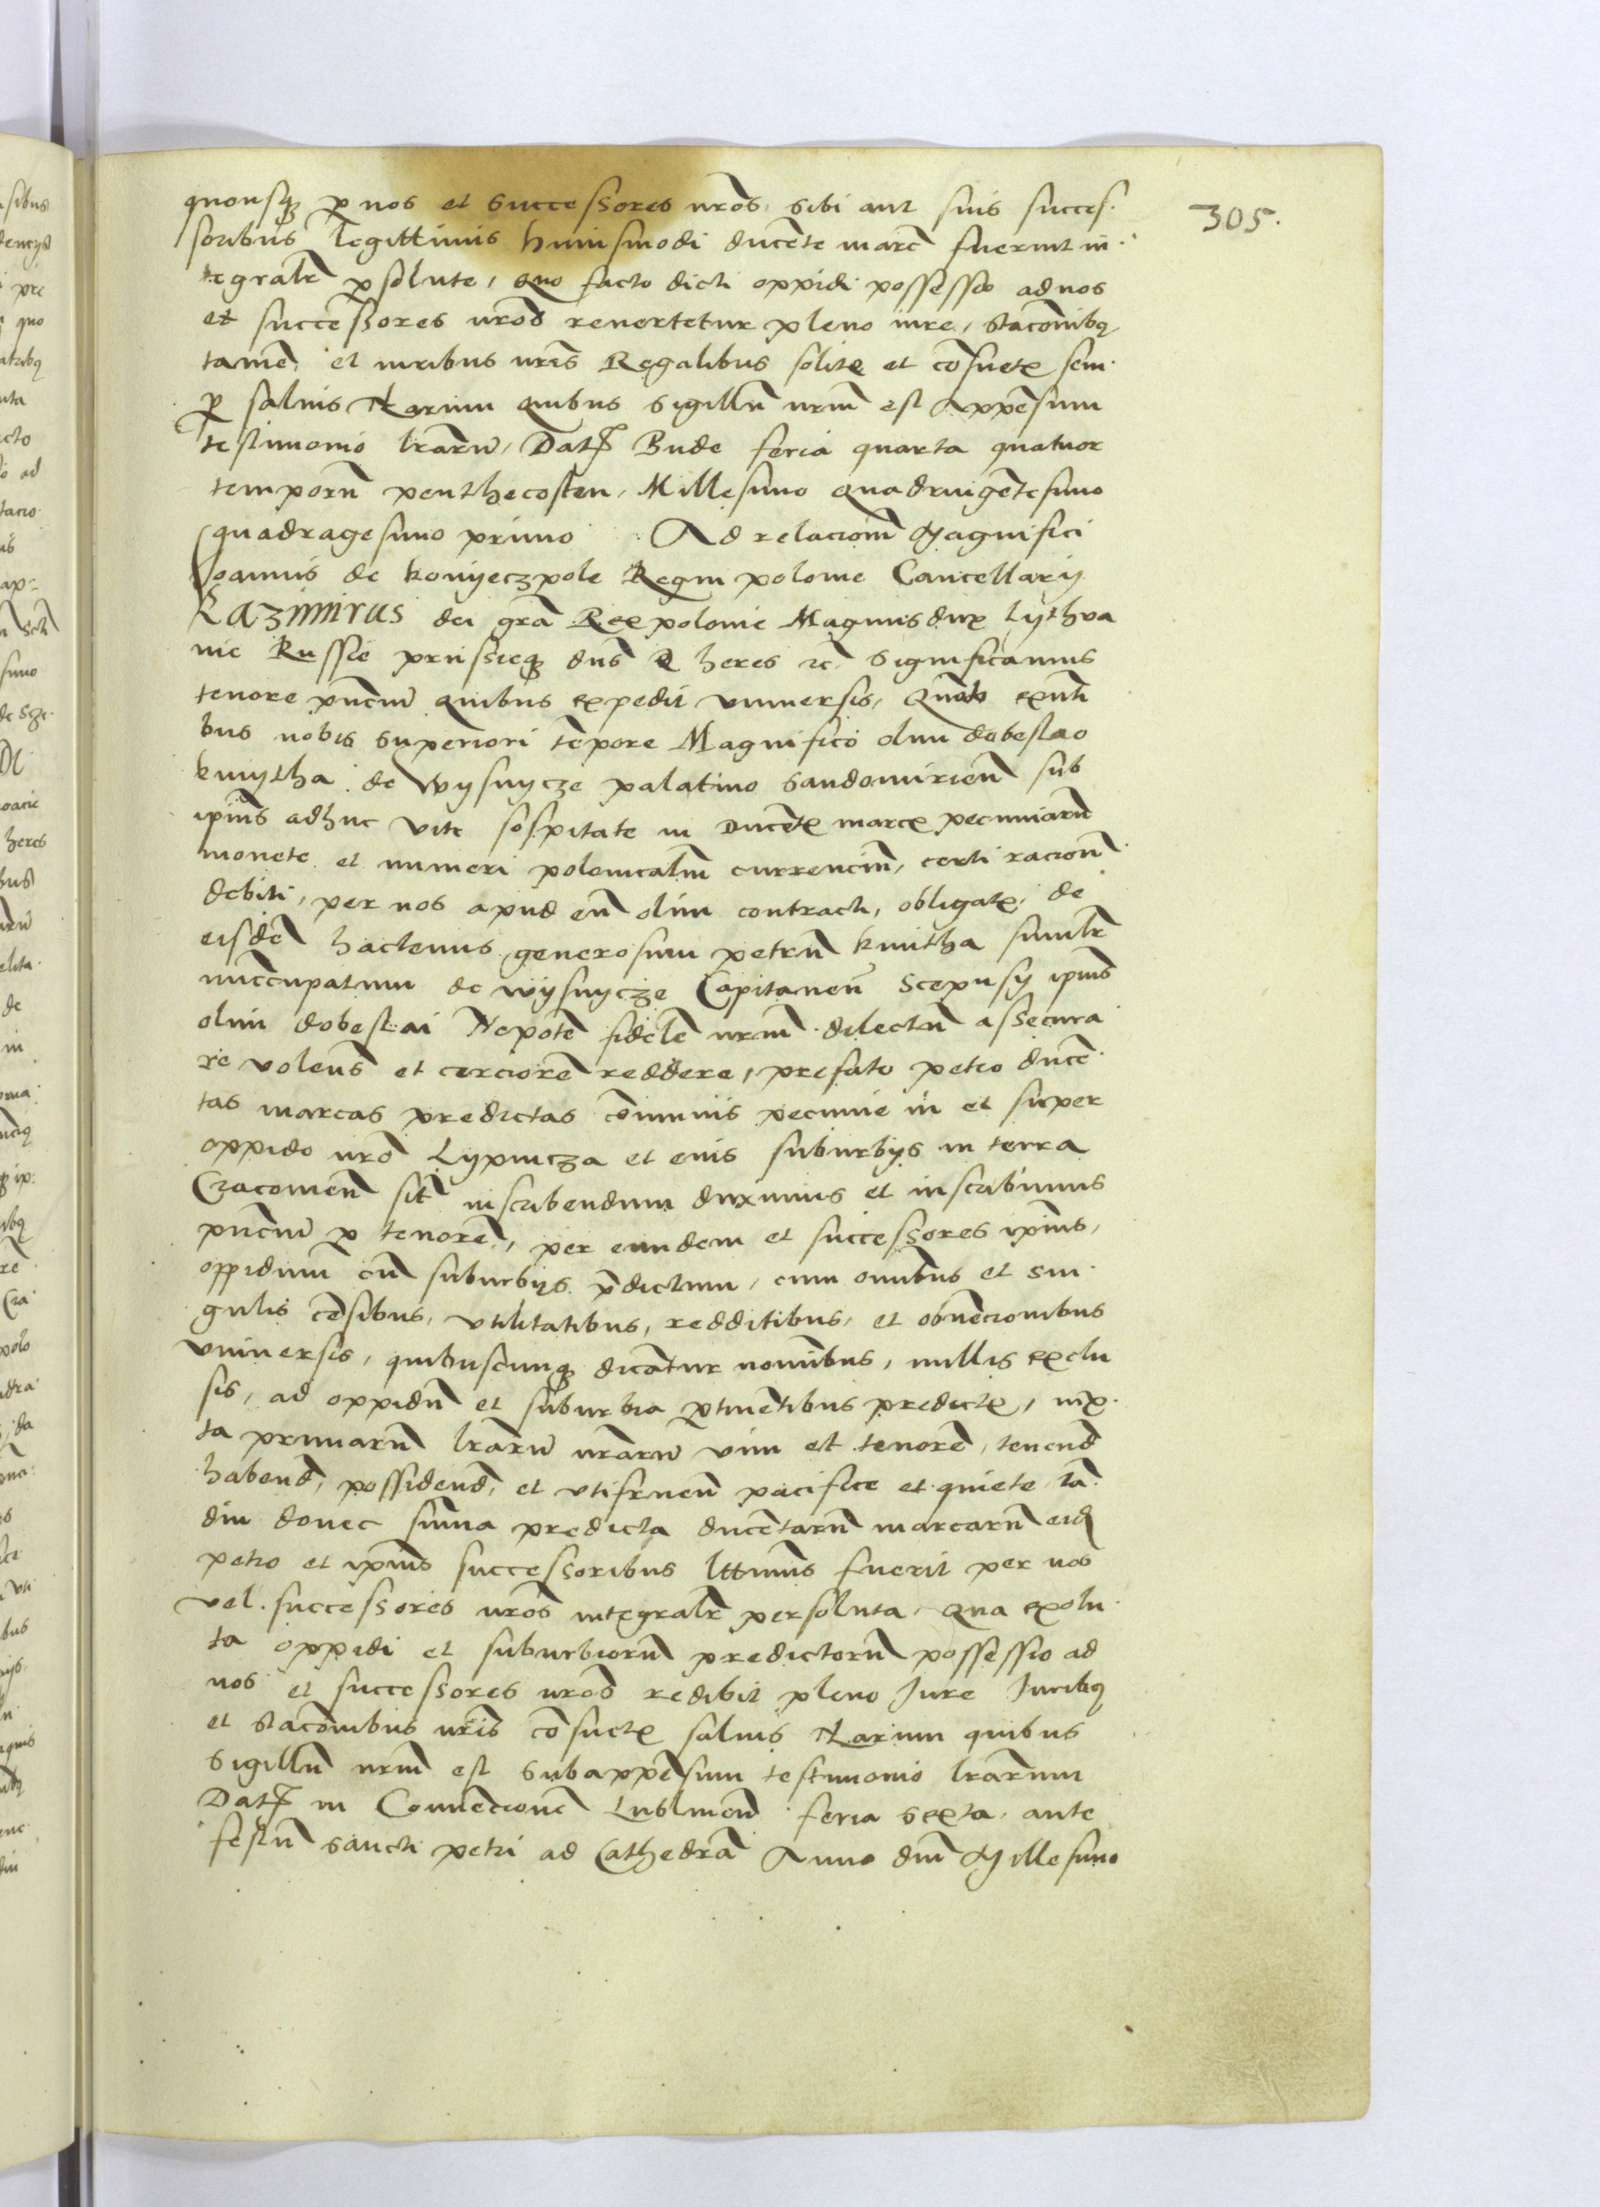 305.
quousq̨ p nos et successores nros, sibi aut suis succes-
soribus legittimis huiusmodi ducente marc̄ fuerint in-
tegralr̄ p solute, quo facto dicti oppidi possessio ad nos
et successores nros revertetur pleno iure, staconibq
tamē et iuribus nris Regalibus solite et cōsuete sem-
p salvis Harum quibus Sigillū nrm est Appēsum
testimonio lrarū, Dat̄ Bude feria quarta quatuor
temporū penthecosten, Millesimo Quadringētesimo
quadragesimo primo Ad relacionē Magnifici
Joannis de konyeczpole Regni polonie Cancellarij
Kazimirus dei gra Rex polonie Magnus dux Lythva
nie Russie prussieq̨ dns & heres rc̄ Significamus
tenore pn̄ciū quibus expedit vniversis, Quō exn̄ti
bus nobis superiori tēpore Magnifico olim dobeslao
kmytha de Wysnycze palatino Sandomirien̄ sub
ipius adhuc vite sospitate in Ducēte marce pecuniarū
monete et numeri polonicalm̄ currenciū, certi racion̄
debiti, per nos apud eū olim contracti, obligate, de
eisdē hactenus generosum petrū kmitha similr̄
nuccupatum de wijsnycze Capitaneū Scepusij ipius
olim dobeslai Nepotē fidelē nrm dilectū assecura
re volens et cerciorē reddere, prefato petro ducē-
tas marcas predictas cōmunis pecunie in et super
oppido nro Lypnicza et eius suburbijs in terra
Cracovien̄ sit̄ inscribendum duximus et inscribimus
pn̄ciū p tenorē, per eundem et successores ipius,
oppidum cū suburbijs pdictum, cum omibus et sin-
gulis cēsibus, vtilitatibus, redditibus, et obvēcionibus
vniversis, quibuscunq̨ dicātur nomibus, nullis exclu
sis, ad oppidū et suburbia ptinētibus predicte, iux-
ta primarū lrarū nrarū vim et tenorē, tenend̄
habend̄, possidend̄, et vtifruen̄ pacifice et quiete tā-
diu donec sum̄a predicta ducētarū marcarū eid̄
petro et ipius successoribus lttimis fuerit per nos
vel successores nros integralr̄ persoluta, Qua exolu-
ta oppidi et suburbiorū predictorū possessio ad
nos et successores nros redibit pleno Jure Juribq
et stacōnibus nris cōsuete salvis Harum quibus
Sigillū nrm est Subappēsum testimonio lrarum
Dat̄ in Convēcione Lublinen̄ feria Sexta, ante
festū Sancti petri ad Cathedrā Anno dni Millesimo